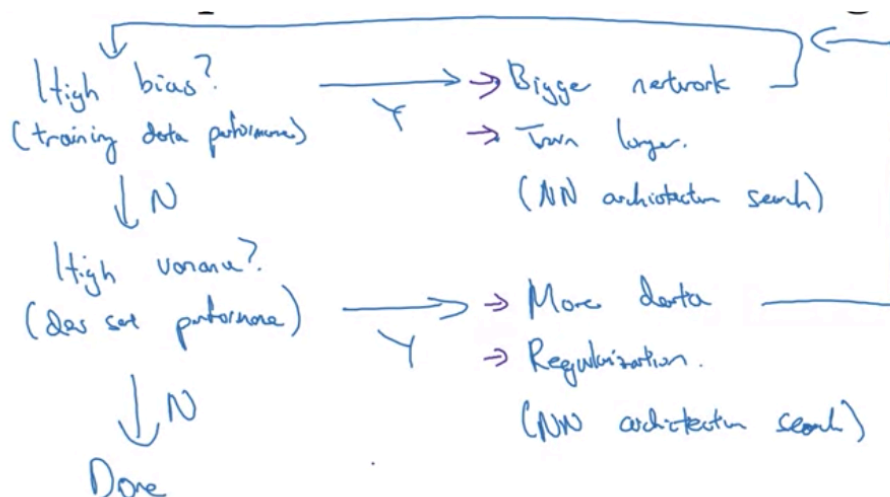 High bias?
(training data performance)
Y
→ Bigger network
→ Train longer.
(NN architecture search)
N
High variance?
(dev set performance)
Y
→ More data
→ Regularization.
(NN architecture search)
N
Done